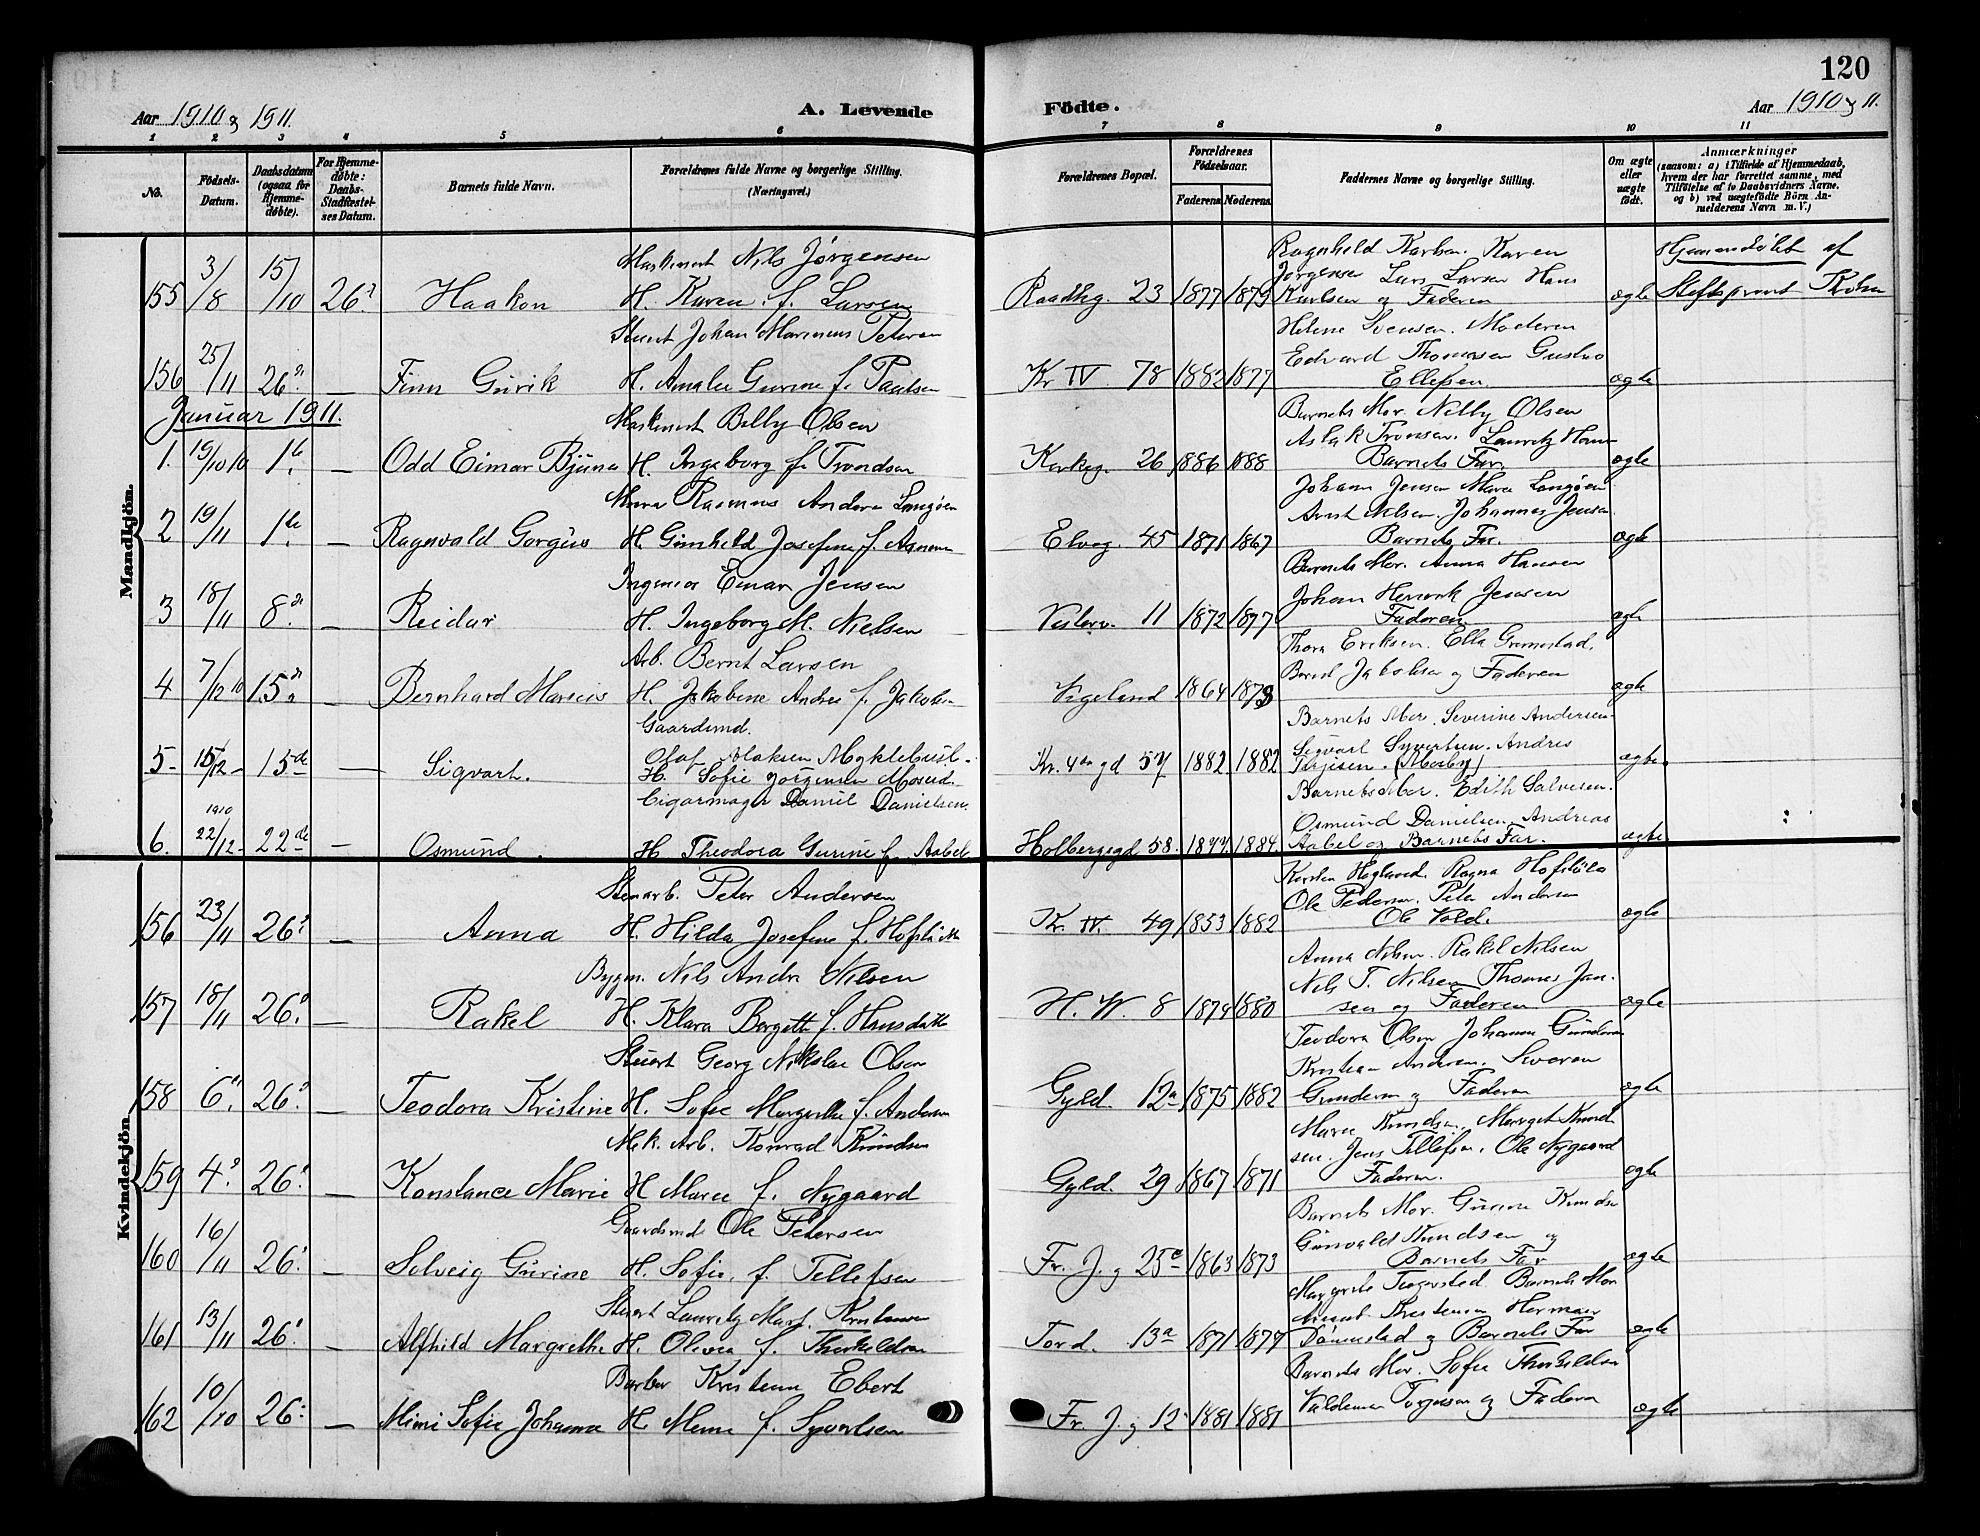 120
Aar 1910 & 1911.
A. Levende Födte.
Aar 1910 & 11.
1 2 3 4 5 6 7 8 9 10 11
No.
Födsels-Datum.
Daabsdatum (ogsaa for Hjemmedöbte).
For Hjemmedöbte: Daabs-Stadfæstelses Datum.
Barnets fulde Navn.
Forældrenes fulde Navne og borgerlige Stilling. (Næringsvei.)
Forældrenes Bopæl.
Forældrenes Födselsaar.
Faderens Moderens
Faddernes Navne og borgerlige Stilling.
Om ægte eller uægte födt.
Anmærkninger
(saasom: a) i Tilfælde af Hjemmedaab, hvem der har forrettet samme, med Tilföielse af to Daabsvidners Navne, og b) ved uægtefödte Börn Anmelderens Navn m. V.)
Mandkjön.
155 3/8 15/10 26 Haakon
Maskinist Nils Jørgensen
H. Karen f. Larsen
Raadhg. 23 1877 1879
Ragnhild Karlsen. Karen
Jørgensen Lars Larsen Hans
Karlsen og Faderen
ægte
Hjemmedøbt af
Stiftsprovst
156 25/11 26 — Finn Gurik
Stuert Johan Marinius Petersen
H. Amalie Gurine f. Paulsen
Kr IV 78 1882 1877
Helene Svensen. Moderen
Edvard Thomasen Gustav
Ellefsen.
ægte
Januar 1911.
1. 19/10 10 1 — Odd Eimar Bjarne
Maskinist Billy Olsen
H. Ingeborg f. Trondsen
Kirkeg. 26 1886 1888
Barnets Mor. Nilly Olsen
Aslak Tronsen. Lauritz
Barnets Far.
ægte
2 19/11 1 — Ragnvald Gorgius
Rasmus Andersen Langøen
H. Gunhild Josefine f. Asmun
Elveg. 45 1871 1867
Johan Jensen Marie Langøen
Arnt Nilsen. Johannes Jensen
Barnets Far.
ægte
3 18/11 8 — Reidar
Ingeniør Einar Jensen
H. Ingeborg M. Nielsen
Vesterv. 11 1872 1877
Barnets Mor. Anna Hansen
Johan Henrik Jensen
Faderen
ægte
4 7/12 10 15 — Bernhard Marius
Arb. Bernt Larsen
H. Jakobine Andrea f. Jakobsen
Vigeland 1864 1873
Thora Eriksen. Ella Grimestad.
Bernt Jakobsen og Faderen
ægte
5 15/12 15de — Sigvart.
Gaardsmd.
Olaf Aslaksen Myklebust.
H. Sofie Jørgensen Mosvd.
Kr. 4de gd 57 1882 1882
Barnets Mor. Severine Andersen
Sigvart Syvertsen. Andreas
Terjesen. (Mosby)
ægte.
6. 1910 22/12 22de — Osmund.
Cigarmager Daniel Danielsen
H. Theodora Gurine f. Aabel
Holbergsgd 58. 1877. 1884
Barnets Mor. Edith Salvesen.
Osmund Danielsen. Andreas
Aabel og Barnets Far.
ægte
Kvindekjön
156 23/11 26 — Anna
Stenarb. Peter Andersen
H. Hilda Josefine f. Hofslätt
Kr. IV. 49 1853 1882
Karsten Ragna
Ole Pedersen. Peter Andersen
Ole Vold.
ægte
157 18/11 26 — Rakel
Bygm. Nils Andr Nilsen
H. Klara Bergette f. Hansdatter
H. W. 8 1874 1880
Anna Nilsen. Rakel Nilsen
Nils T. Nilsen Thomas Jan-
sen og Faderen
ægte
158 6 26 — Teodora Kristine
Stuert Georg Nikolai Olsen
H. Sofie Margrethe f. Andersen
Gyld. 12a 1875 1882
Teodora Olsen Johanna Gundersen
Kristian Andersen. Severin
Gundersen og Faderen
ægte
159 4 26 — Konstance Marie
Mek. Arb. Konrad Knudsen
H Marie f. Nygaard
Gyld. 29 1867 1871
Marie Knudsen. Margit Knud-
sen. Jens Tellefsen. Ole Nygaard
Faderen.
ægte
160 16/11 26 — Solveig Gurine
Gaardsmd. Ole Petersen
H. Sofie, f. Tellefsen
Fr. J. g 25c 1863 1873
Barnets Mor. Gurine Knudsen
Gunvald Knudsen og
Barnets Far
ægte
161 13/11 26 — Alfhild Margrethe
Stuert Lauritz Mart. Kristensen
H. Olivia f. Therkeldsen
Tord. 13a 1871 1874
Margrete Barnets Mor
Kristensen Herman
Dønnestad og Barnets Far
ægte
162 10/10 26 — Mimi Sofie Johanna
Barber Kristian Ebert
H. Menne f. Syvertsen
Fr. J. g 12 1881 1881
Barnets Mor. Sofie Therkeldsen
Valdemar Torgersen og Faderen
ægte